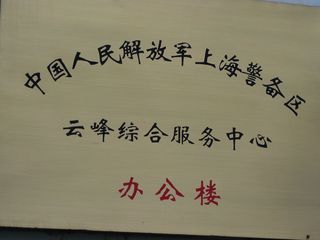 中国人民解放军上海警备区
云峰综合服务中心
办公楼